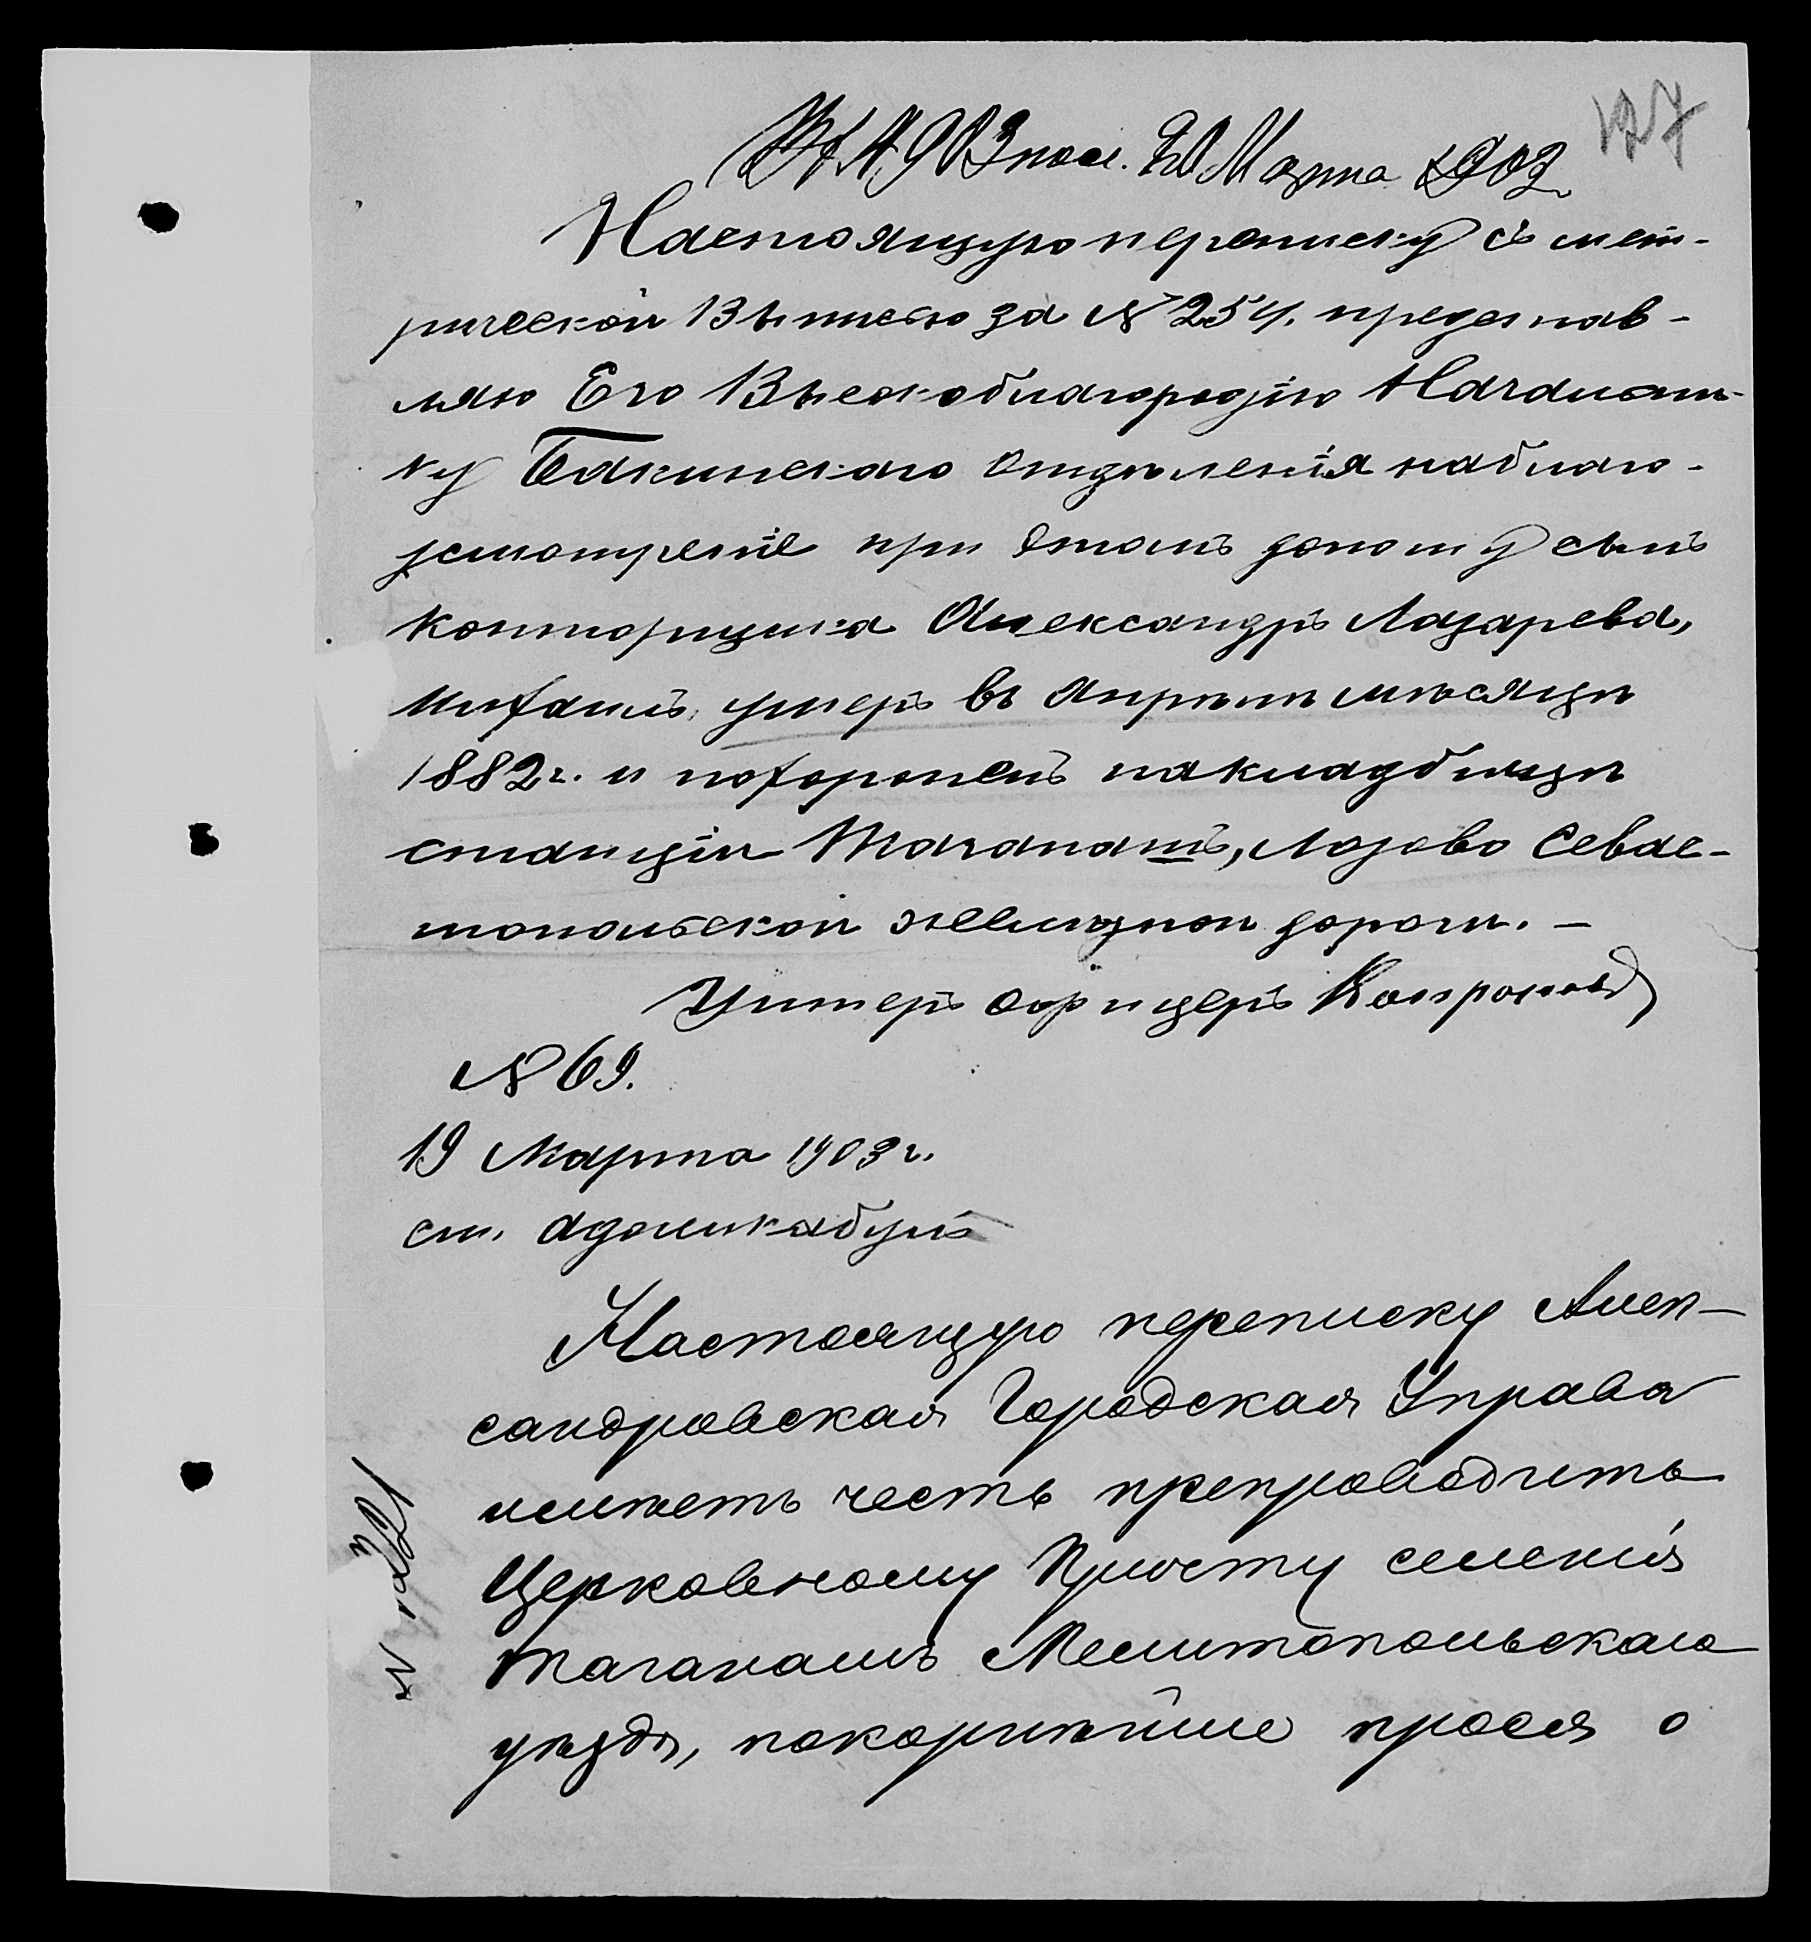 127
Марта 1903
Настоящую переписку съ мет-
рической Выписью за № 254. представ-
ляю Его Высокоблагородію Начальни-
ку Бакинскаго Отдѣленія наблаго-
усмотреніе при этомъ доношу сынъ
конторщика Александръ Лазарева,
Михаилъ, умеръ въ Апрѣлѣ мѣсяцѣ
1882 г. и похороненъ накладбищѣ
станціи Таганашъ, Лозово Севас-
топольской желѣзной дороги. —
Унтеръ офицеръ
№ 69.
19 Марта 1903 г.
ст. Аджикабулъ
Настоящую переписку Алек-
сандровская Городская Управа
имѣетъ честь препроводить
Церковному Причту селенія
Таганашъ Мелитопольскаго
уѣзда, покорнѣйше прося о